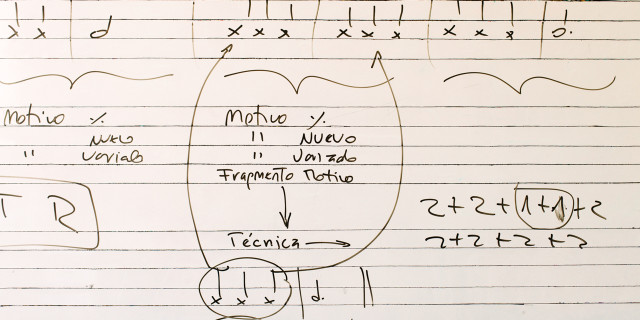 Motivo ٪.
Nuevo
" Variado
T R
Motivo ٪.
" Nuevo
" Variado
Fragmento Motivo
Técnica →
2+2+1+1+2
2+2+2+2